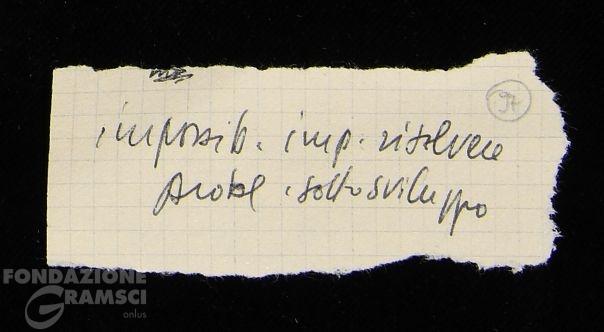 97
impossib. imp. risolvere
probl. sottosviluppo
FONDAZIONE
GRAMSCI
onlus